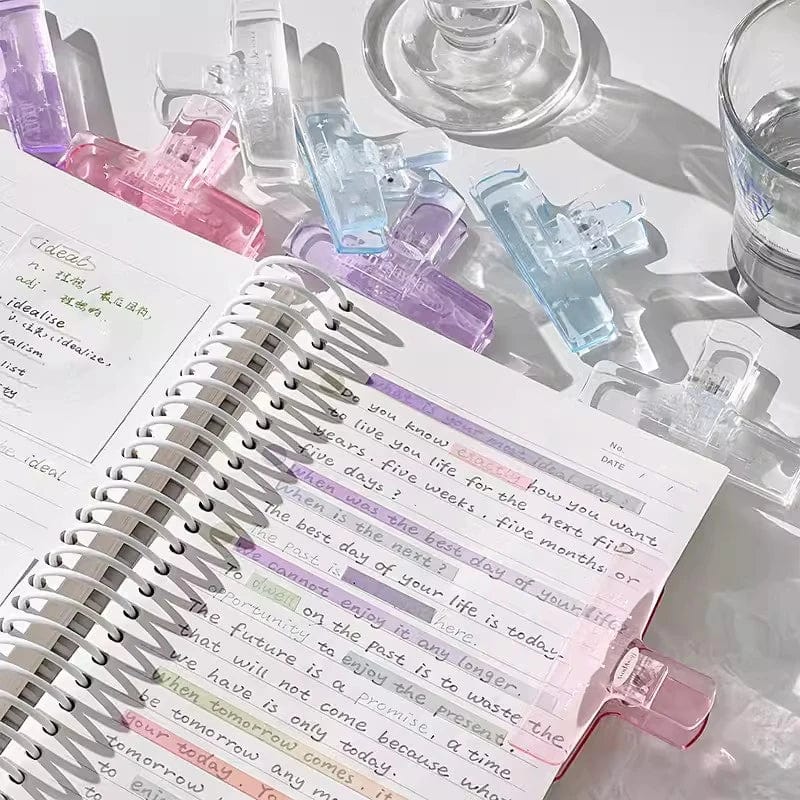 ideal
n: 理想 /
adj: 理想的
idealise
idealize,
dealism
list
ty
he ideal
No.
DATE / /
What is your most ideal day?
Do you know exactly how you want
to live you life for the next five
years. five weeks. five months or
five days?
When was the best day of your life?
When is the next?
The best day of your life is today.
The past is
We cannot enjoy it any longer.
here.
To dwell on the past is to waste the
opportunity to enjoy the present.
The future is a promise, a time
that will not come because what
we have is only today.
When tomorrow comes, it
be tomorrow any mo
your today. Yo
tomorrow
to enj
to